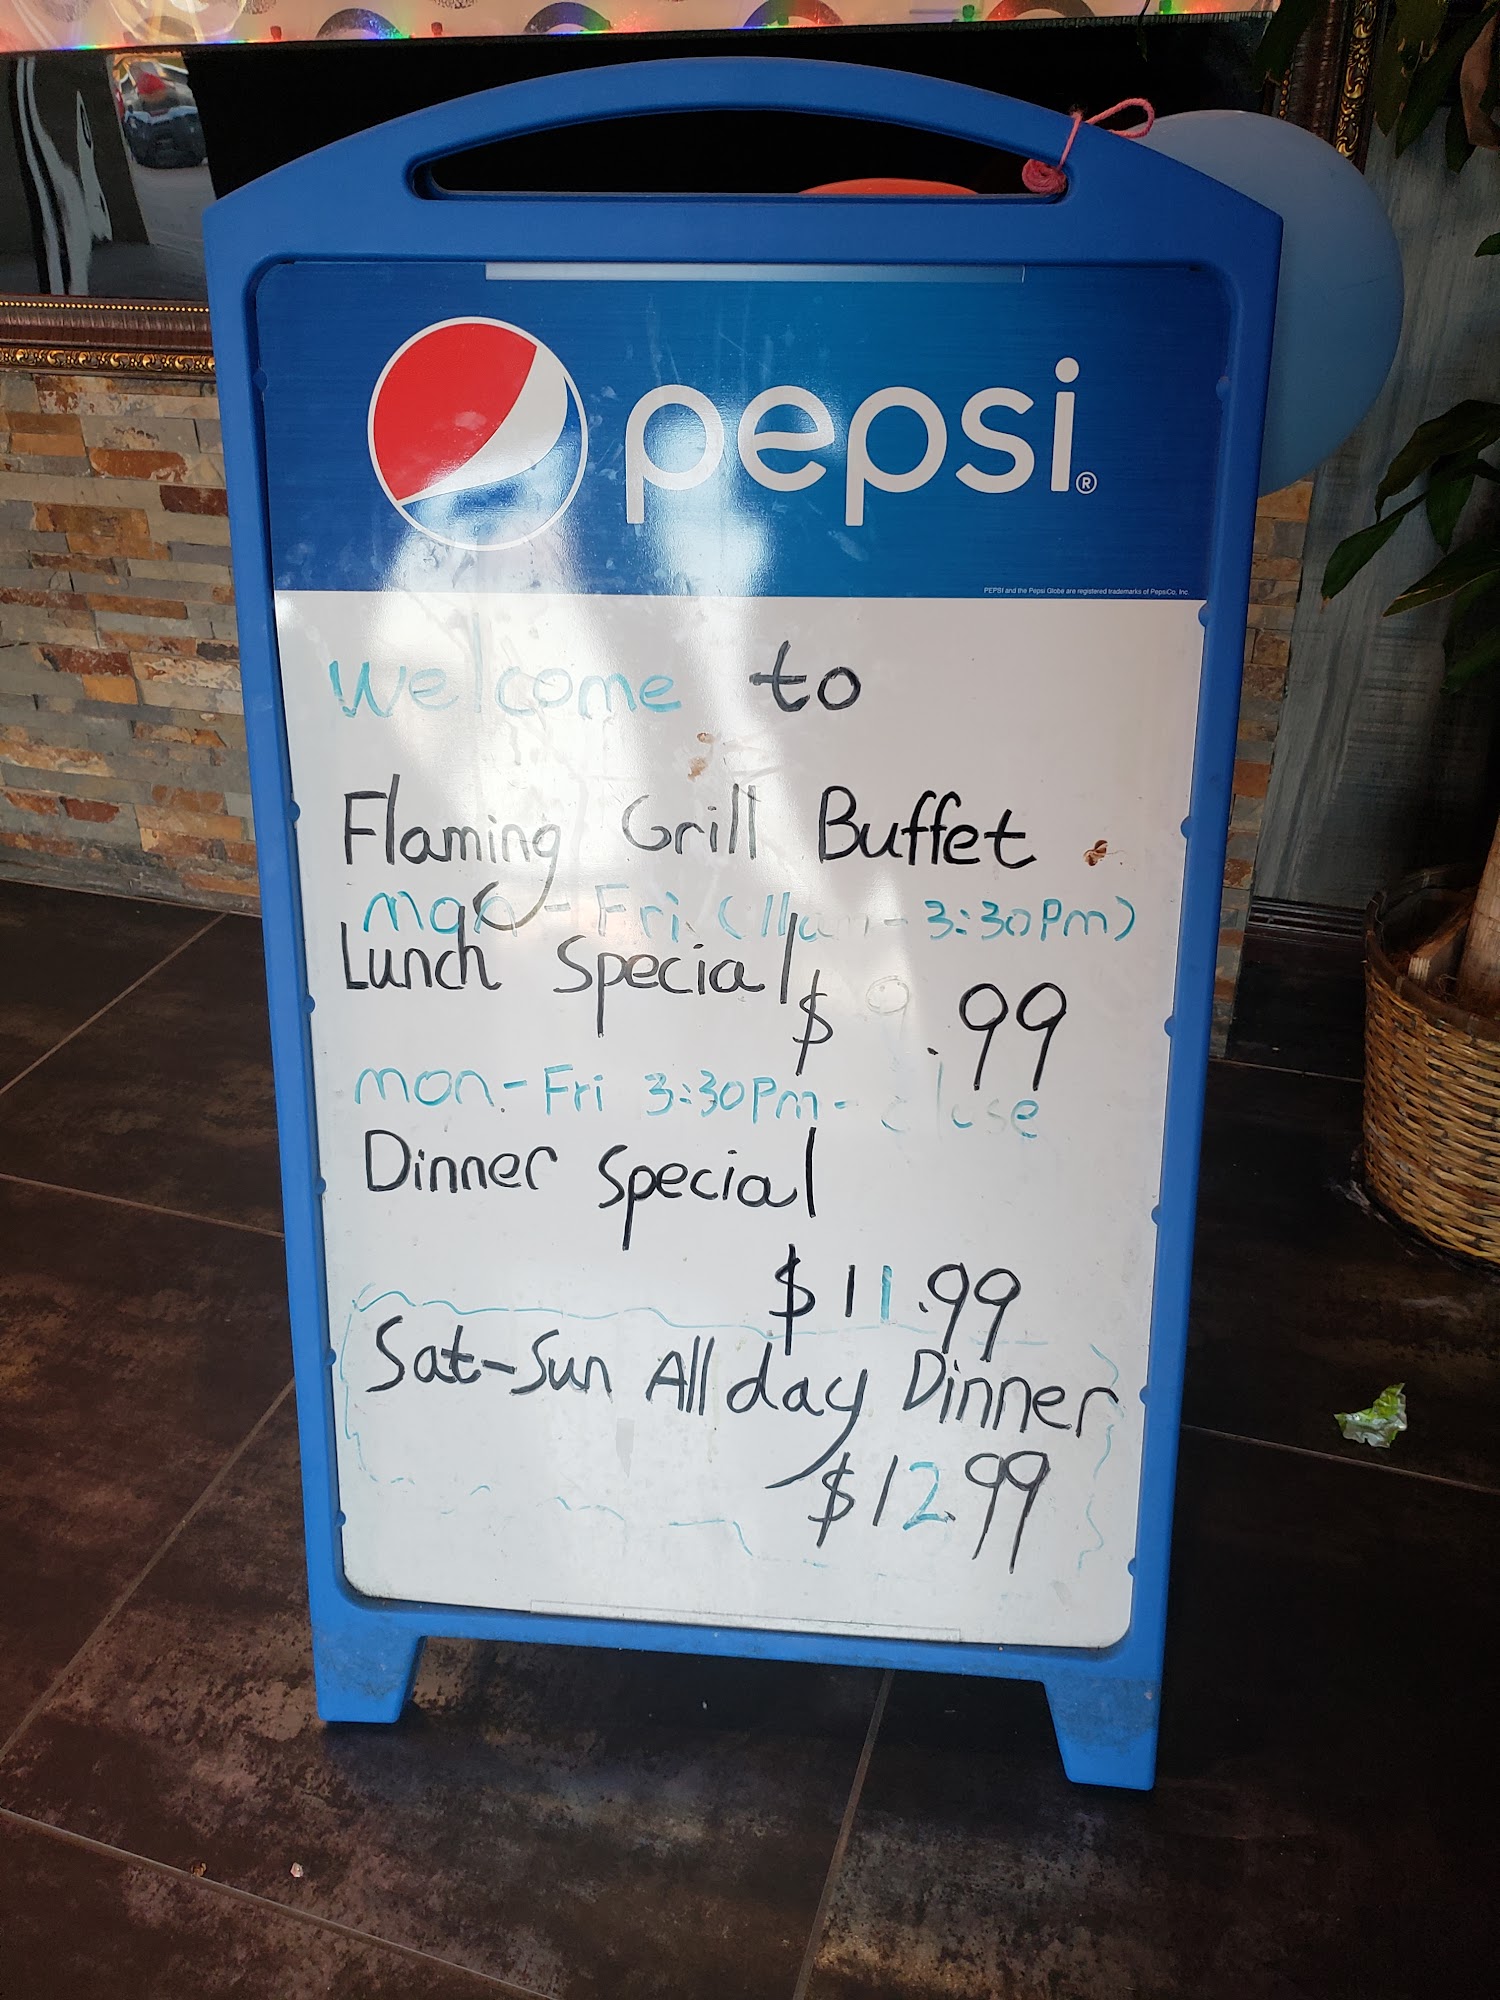 pepsi®
PEPSI and the Pepsi Globe are registered trademarks of PepsiCo, Inc.
Welcome to
Flaming Grill Buffet
mon-Fri (11am-3:30Pm)
Lunch Special
$9.99
mon-Fri 3:30Pm-close
Dinner Special
$11.99
Sat-Sun All day Dinner
$12.99